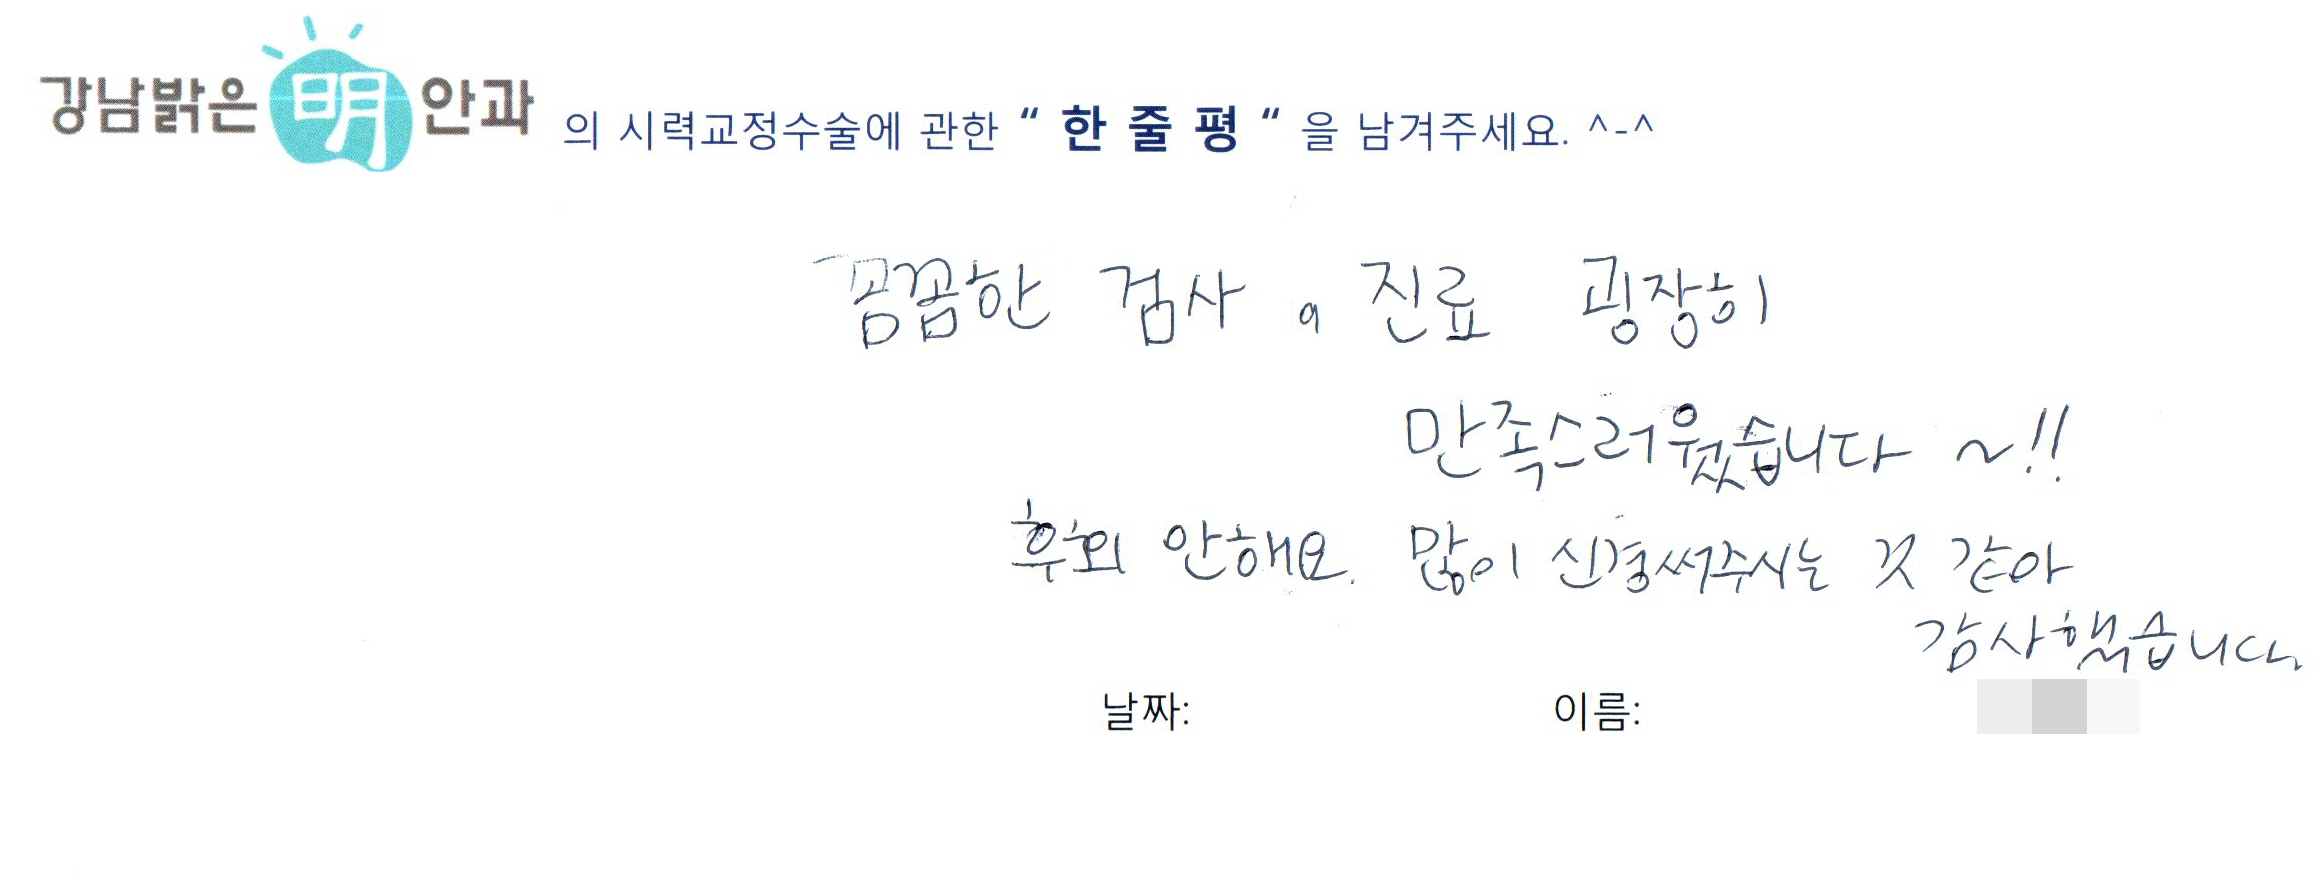 강남밝은明안과 의 시력교정수술에 관한 “ 한 줄 평 “ 을 남겨주세요. ^-^
꼼꼼한 검사 , 진료 굉장히
만족스러웠습니다 ~!!
후회 안해요. 많이 신경써주시는 것 같아
감사했습니다
날짜: 이름: